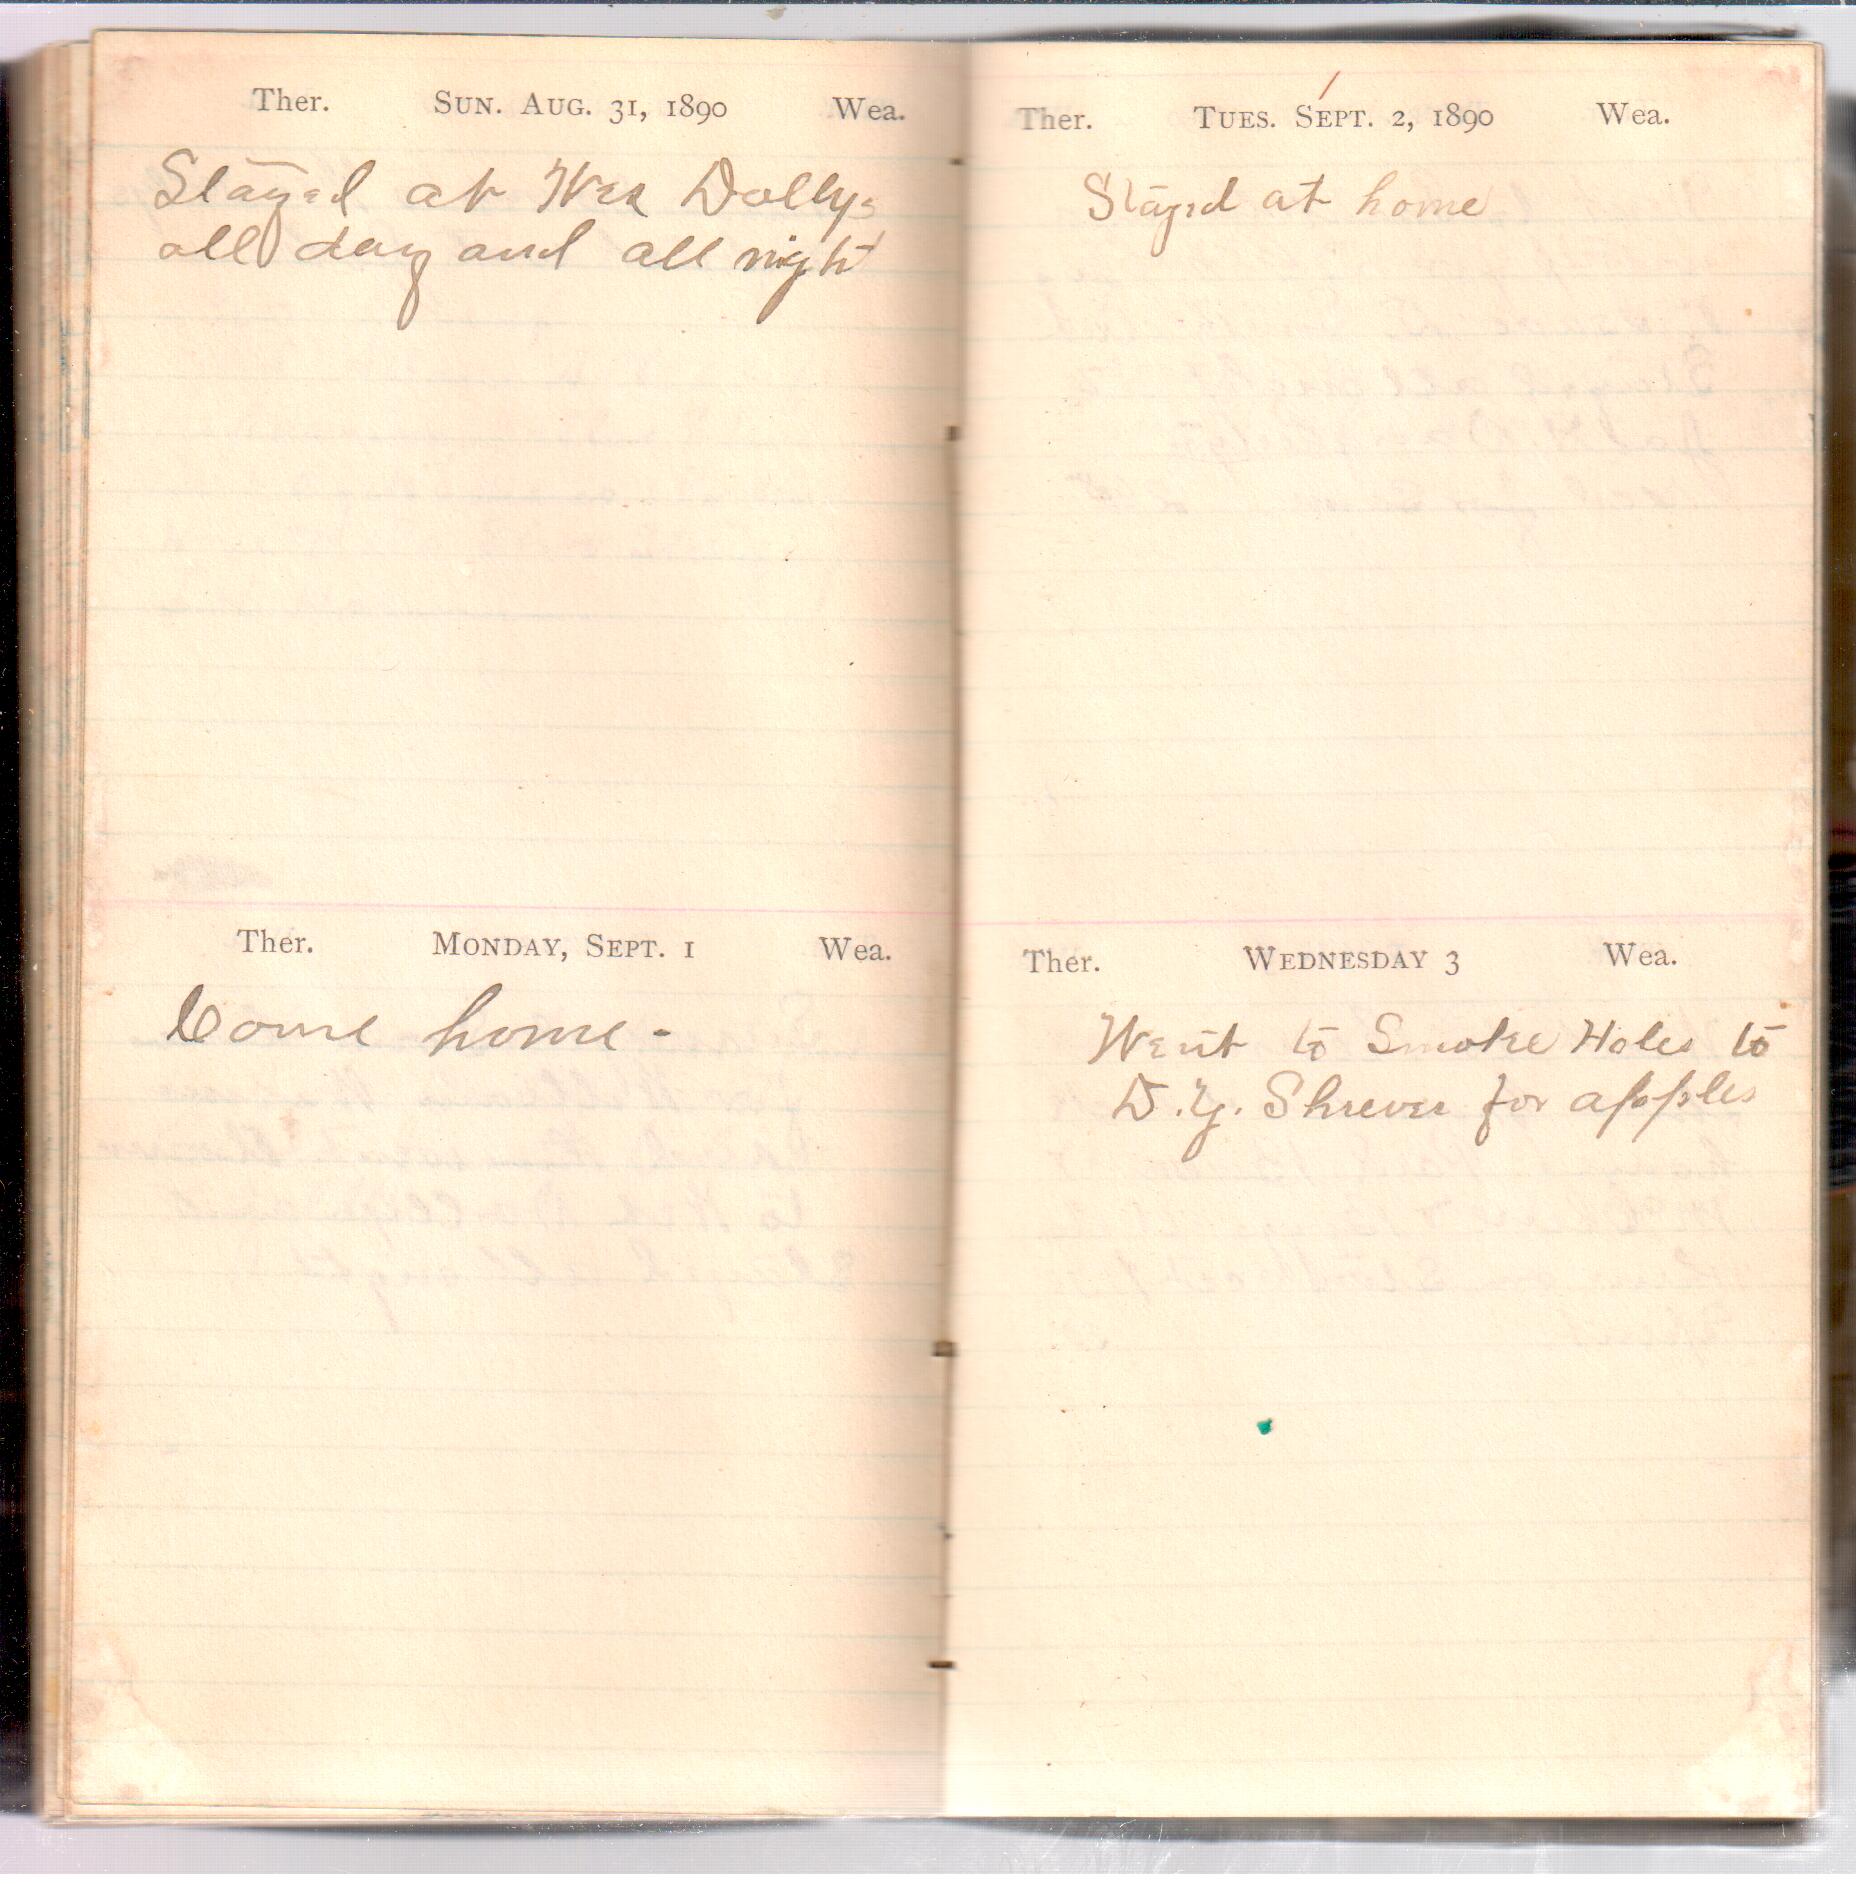 Ther. SUN. AUG. 31, 1890 Wea.
Stayed at Wes Dollys
all day and all night
Ther. MONDAY, SEPT. 1 Wea.
Come home -
Ther. TUES. SEPT. 2, 1890 Wea.
Stayed at home
Ther. WEDNESDAY 3 Wea.
Went to Smoke Holes to
D.Y. Shrever for apples